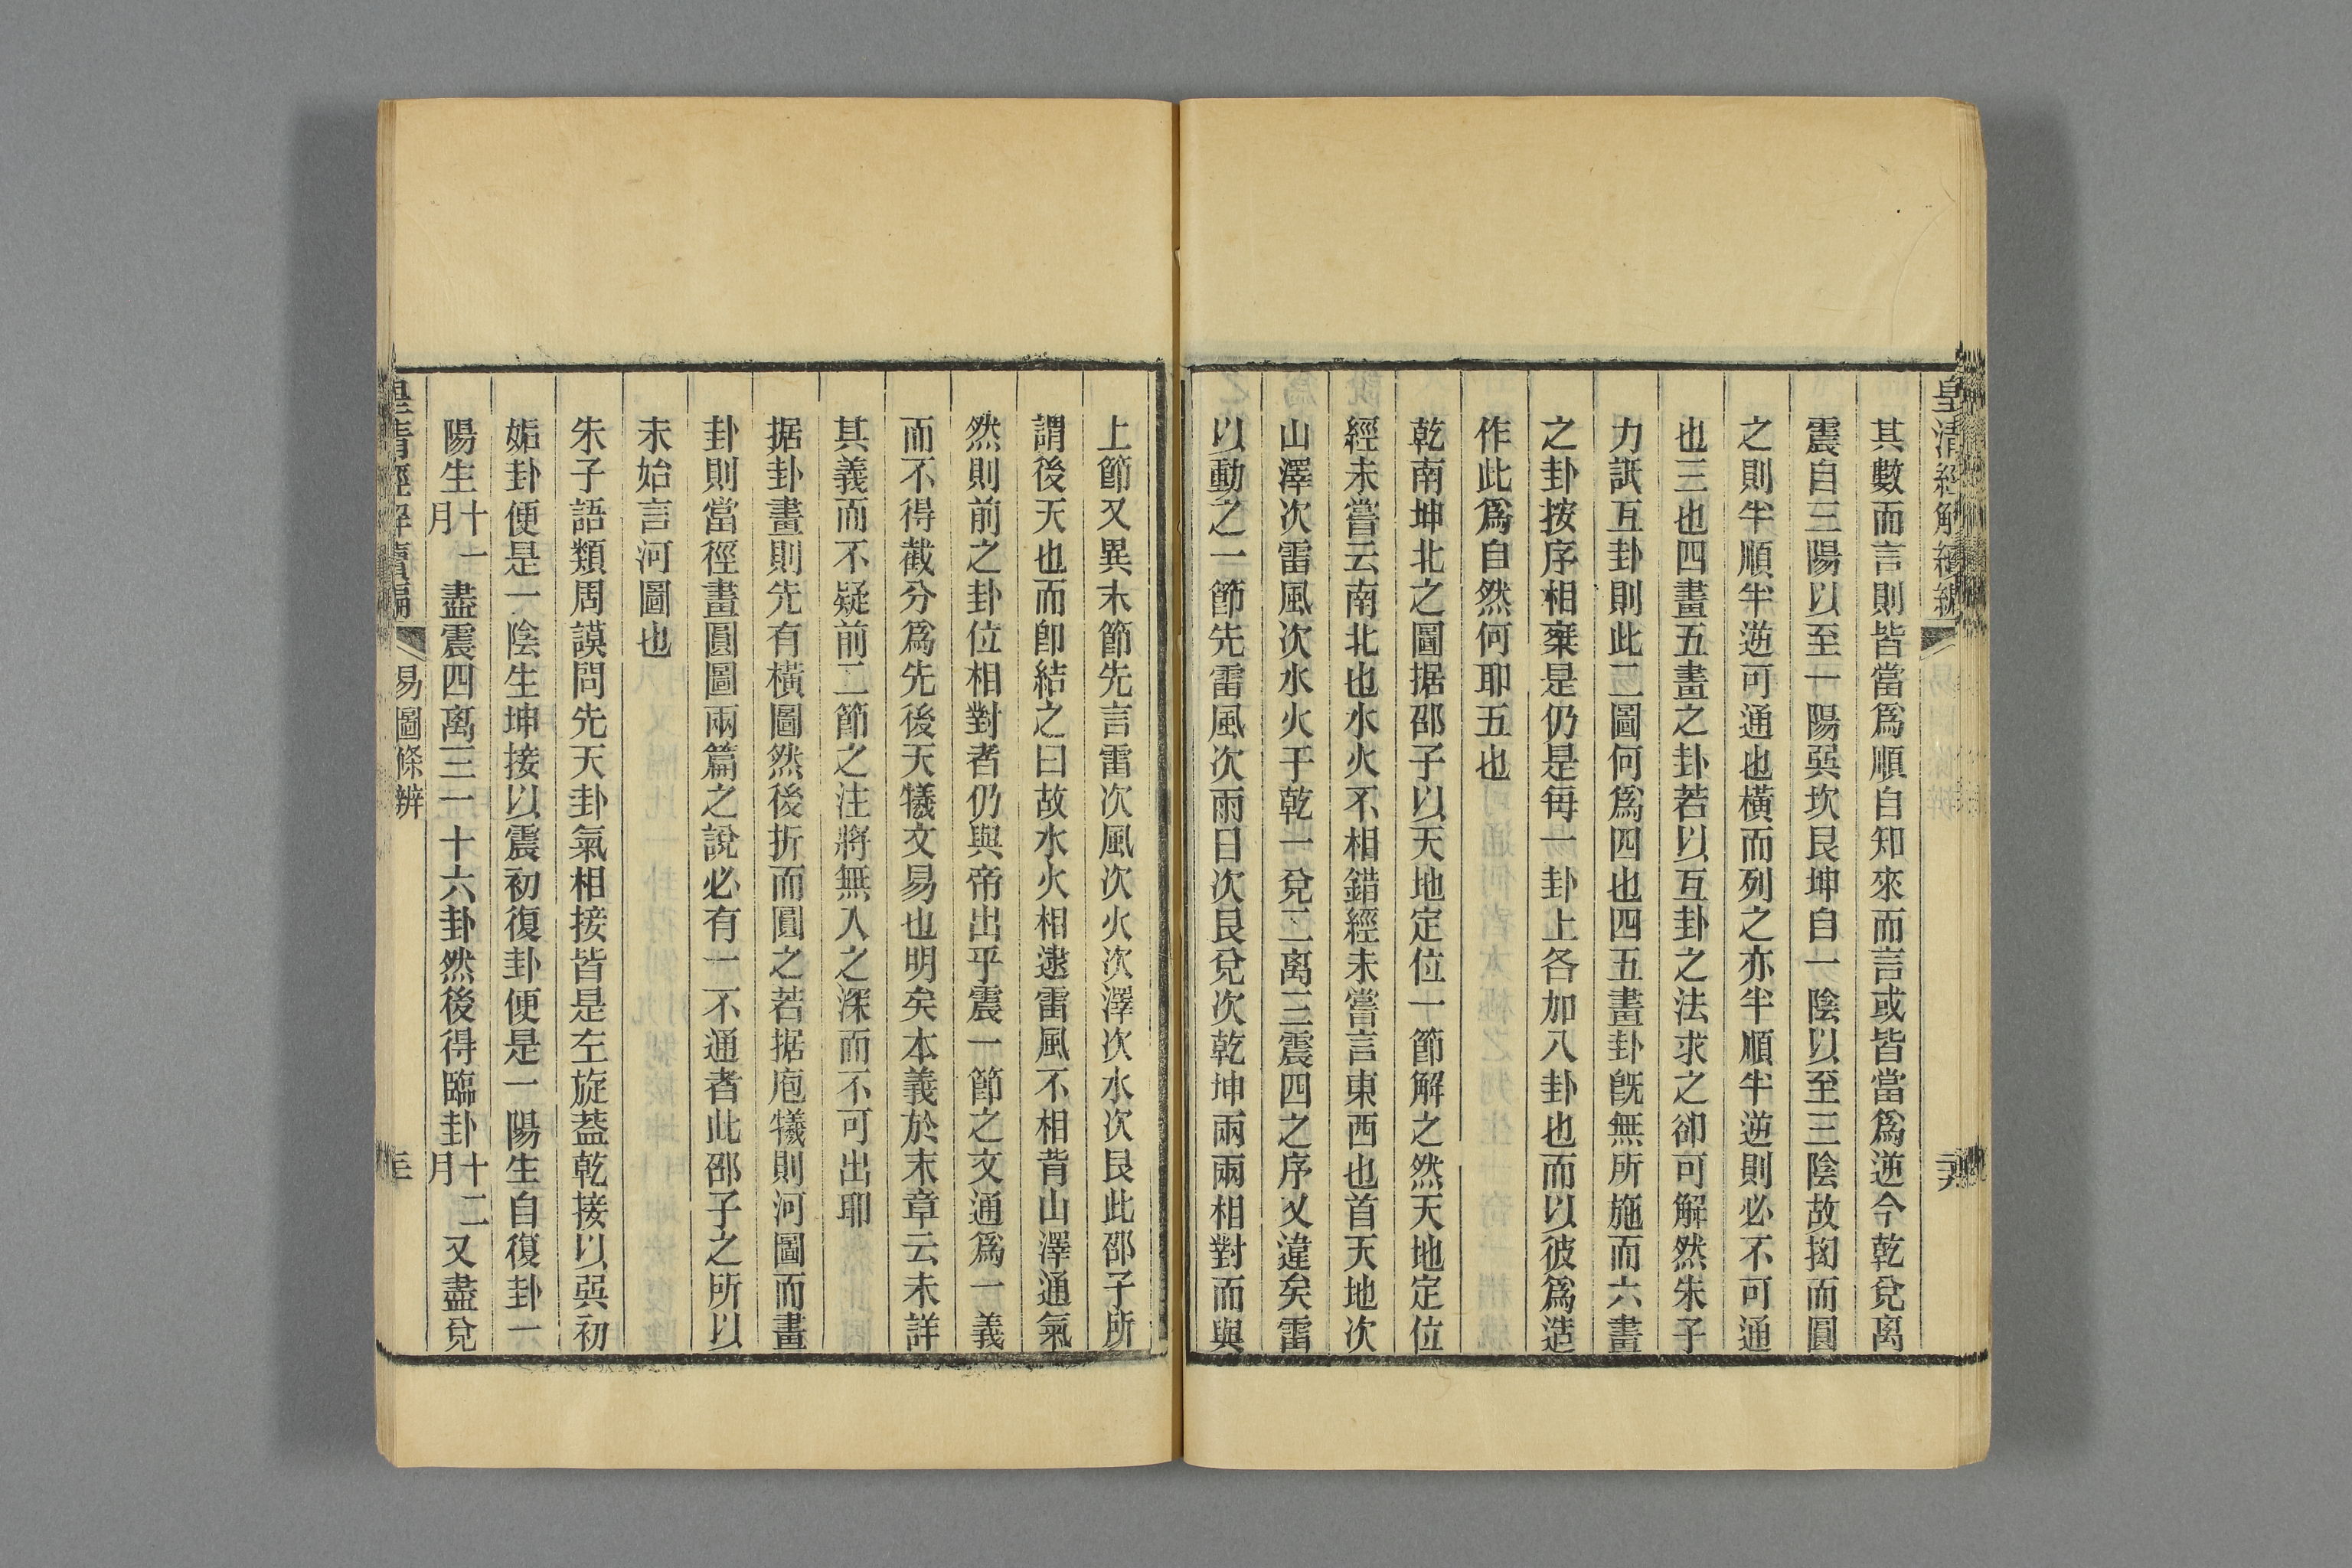 皇清經解續編
其數而言則皆當爲順自知來而言或皆當爲逆今乾兌离
震自三陽以至一陽巽坎艮坤自一陰以至三陰故拗而圓
之則半順半逆可通也橫而列之亦半順半逆則必不可通
也三也四畫五畫之卦若以互卦之法求之卻可解然朱子
力詆互卦則此二圖何爲四也四五畫卦旣無所施而六畫
之卦按序相棄是仍是每一卦上各加八卦也而以彼爲造
作此爲自然何耶五也
乾南坤北之圖据邵子以天地定位一節解之然天地定位
經未嘗云南北也水火不相錯經未嘗言東西也首天地次
山澤次雷風次水火于乾一兌二离三震四之序又違矣雷
以動之一節先雷風次雨日次艮兌次乾坤兩兩相對而與
上節又異末節先言雷次風次火次澤次水次艮此邵子所
謂後天也而卽結之曰故水火相逮雷風不相背山澤通氣
然則前之卦位相對者仍與帝出乎震一節之文通爲一義
而不得截分爲先後天犧文易也明矣本義於末章云未詳
其義而不疑前二節之注將無入之深而不可出耶
据卦畫則先有橫圖然後折而圓之若据庖犧則河圖而畫
卦則當徑畫圓圖兩篇之說必有一不通者此邵子之所以
未始言河圖也
朱子語類周謨問先天卦氣相接皆是左旋葢乾接以巽初
姤卦便是一陰生坤接以震初復卦便是一陽生自復卦一
陽生十一月盡震四离三一十六卦然後得臨卦十二月又盡兌
皇清經解續編 易圖條辨